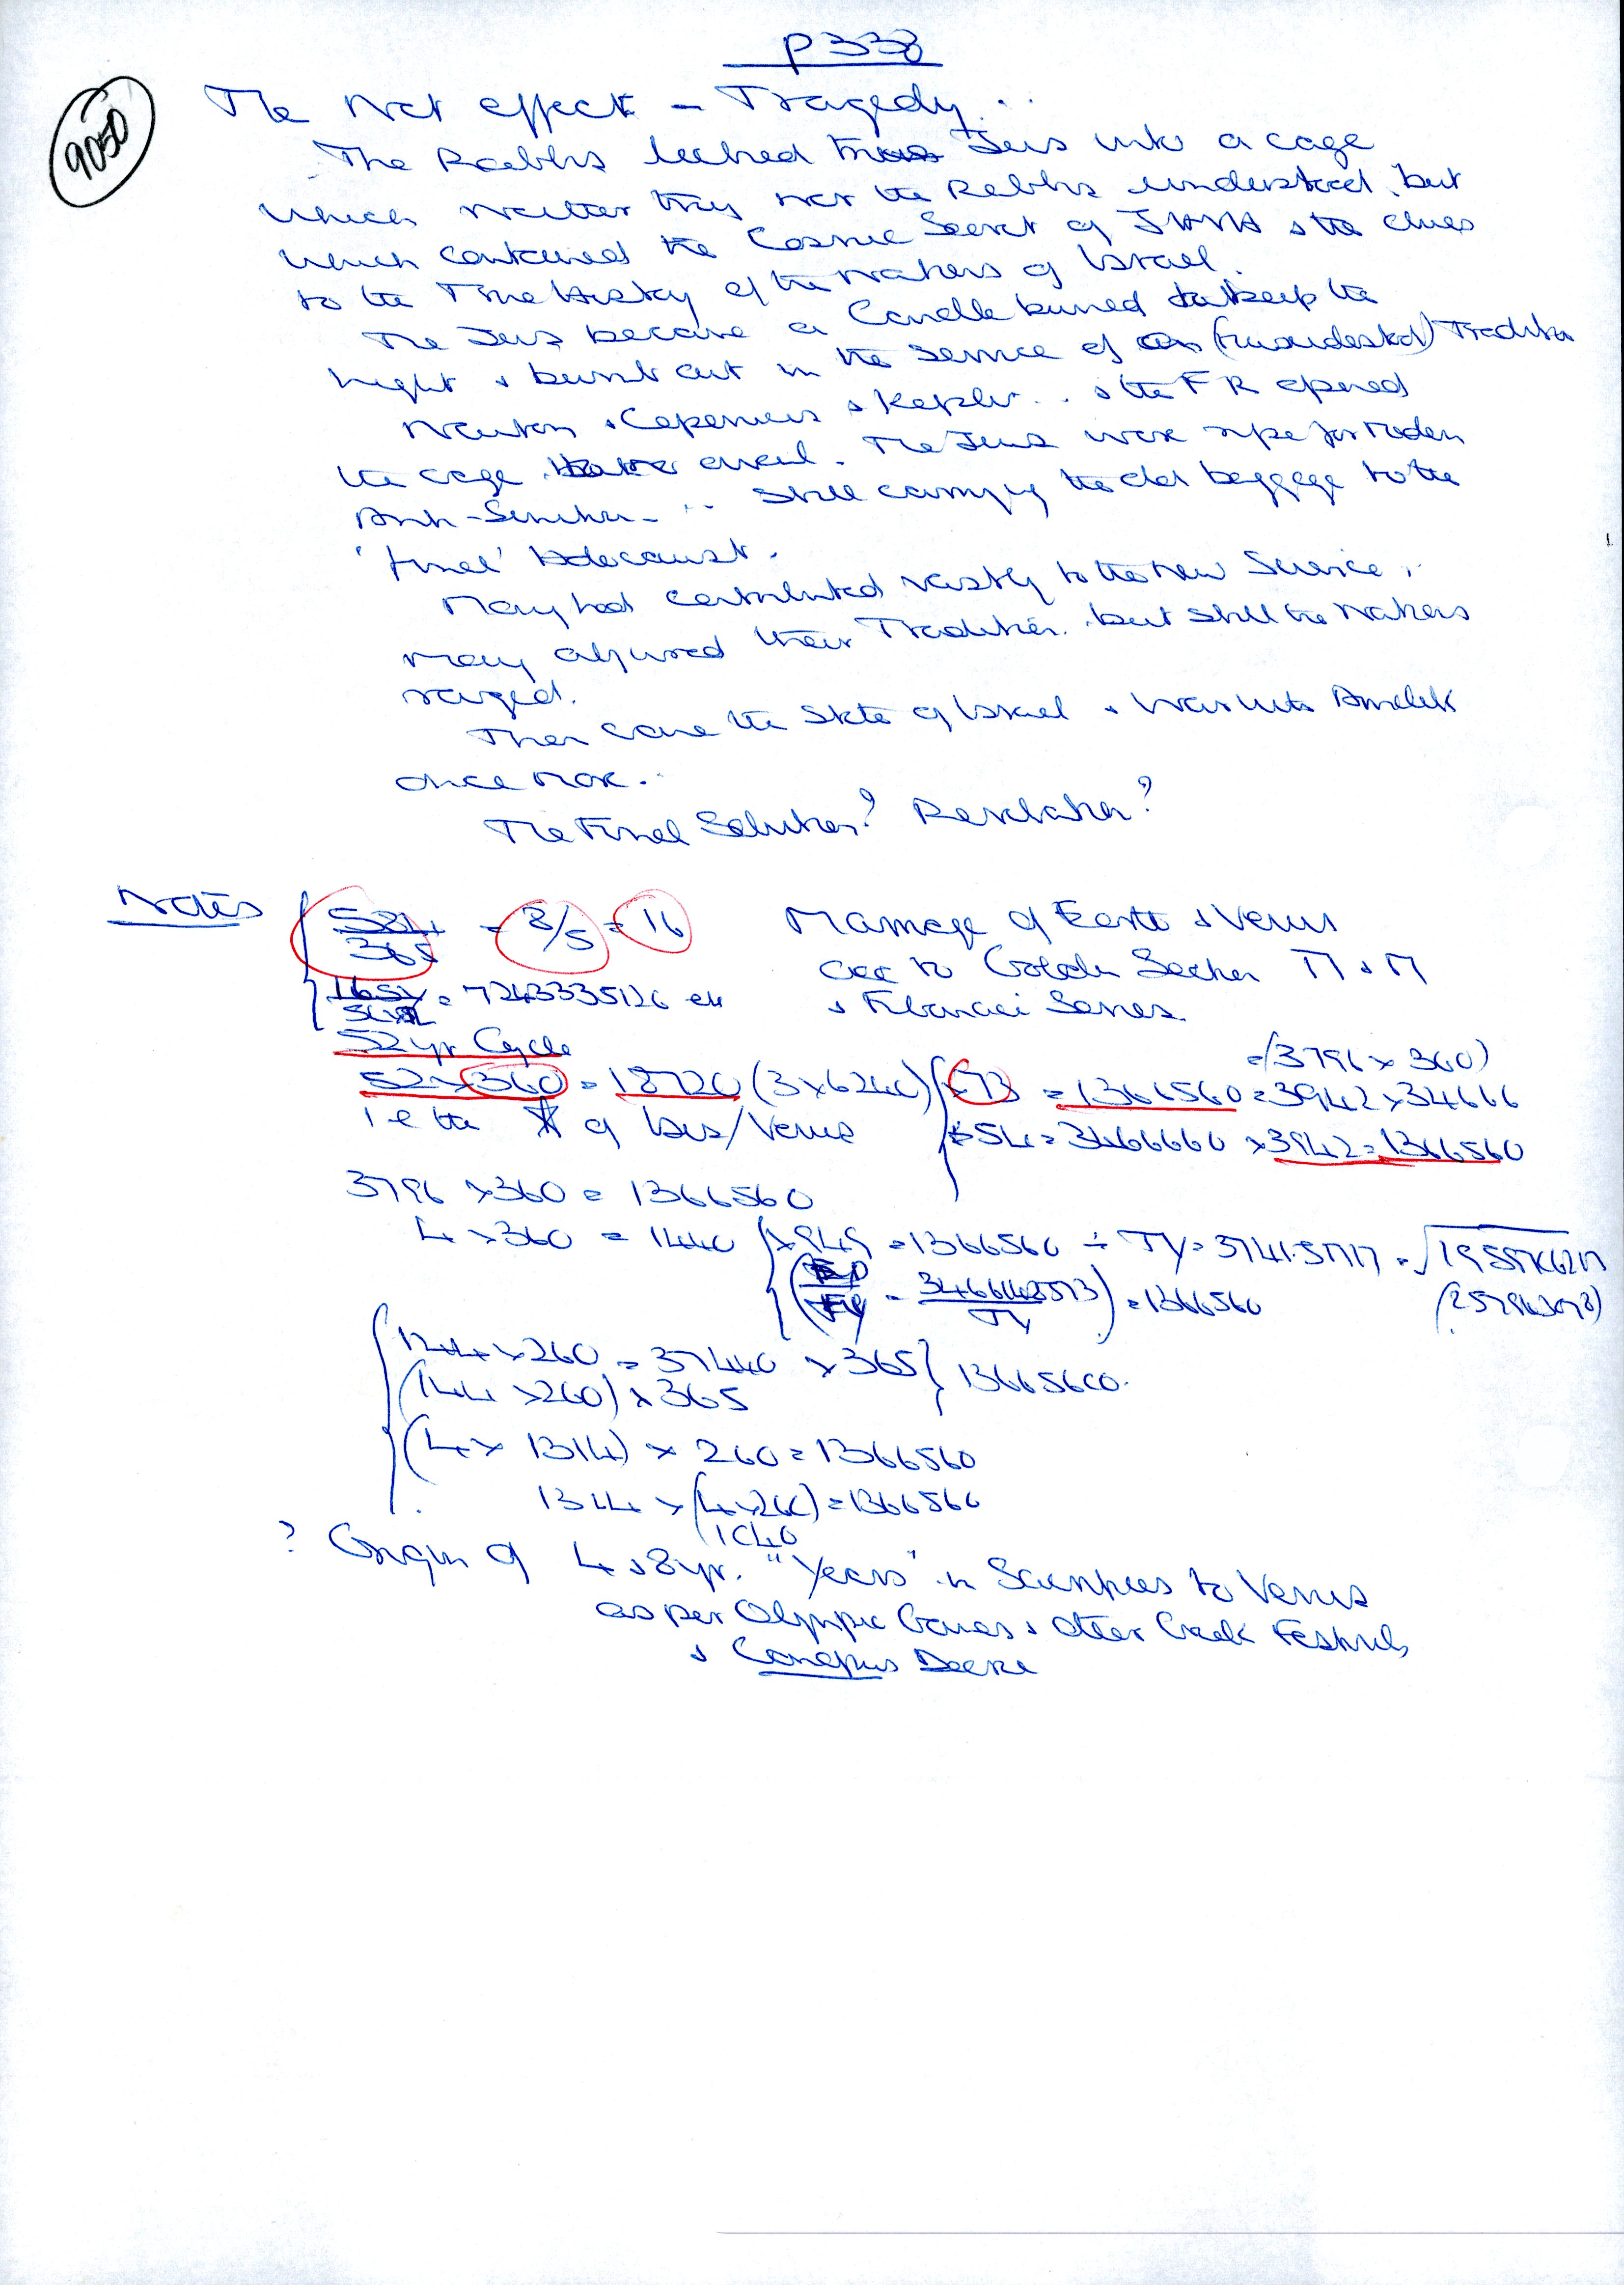 P338
9050
The Net effect – Tragedy..
The Rabbis locked Jews into a cage
which neither they nor the Rabbis understood, but
which contained the Cosmic Secret of JHVH & the clues
to the True History of the Makers of Israel.
The Jews became a Candle burned to keep the
Light & burnt out in the service of (misunderstood) Tradition
Newton & Copernicus & Kepler... & the FR opened
the cage. The Jews were ripe for Modern
Anti-Semitism - .. Still carrying the old baggage to the
'final' Holocaust.
Many had contributed vastly to the new Science..
many abjured their Tradition. but still the Nations
raged.
Then came the State of Israel & War with Amelek
once more..
The Final Solution? Revelation?
Notes
584/365 = 8/5 = 16 Marriage of Earth & Venus
acc to Golden Section
= 7243335126 & Fibonacci Series.
52 yr Cycle
= (3796 x 360)
52 x 360 = 18720 (3 x 6240) x 73 = 1366560 = 3942 x 34666
i e the of Isis/Venus 54 = 3466660 x 3942 = 1366560
3796 x 360 = 1366560
4 x 360 = 1440 x 949 = 1366560 ÷ TY = 3741.5717 =
= 1366560
144 x 260 = 37440 x 365 } 13665600.
(144 x 260) x 365
(4 x 1314) x 260 = 1366560
1314 x (4 x 260) = 1366560
1040
? Origin of 4 & 8 yr. "Years" in Sacrifices to Venus
as per Olympic Games & other Greek Festivals
& Canopus Decree